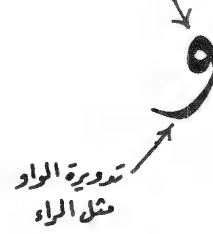 و
تدويرة الواو
مثل الراء